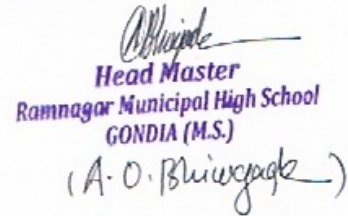 Head Master
Ramnagar Municipal High School
GONDIA (M.S.)
(A. O. Bhiwgade)